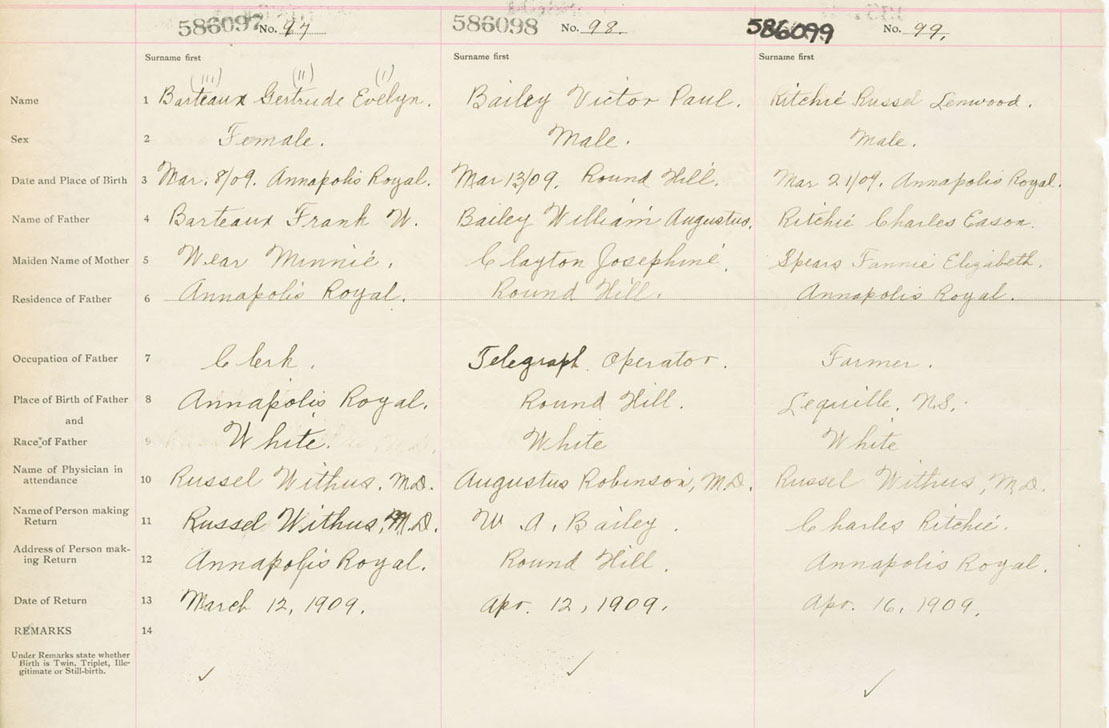 586097 No. 97 586098 No. 98. 586099 No. 99.
Surname first Surname first Surname first
(III) (II) (I)
Name 1 Barteaux Gertrude Evelyn. Bailey Victor Paul. Ritchie Russel Lenwood.
Sex 2 Female. Male. Male.
Date and Place of Birth 3 Mar. 8/09. Annapolis Royal. Mar 13/09. Round Hill. Mar 21/09. Annapolis Royal.
Name of Father 4 Barteaux Frank W. Bailey William Augustus. Ritchie Charles Eason.
Maiden Name of Mother 5 Wear Minnie. Clayton Josephine. Spears Fannie Elizabeth.
Residence of Father 6 Annapolis Royal. Round Hill. Annapolis Royal.
Occupation of Father 7 Clerk. Telegraph Operator. Farmer.
Place of Birth of Father 8 Annapolis Royal. Round Hill. Lequille, N.S.
and
Race of Father 9 White. White White
Name of Physician in
attendance 10 Russel Withus, M.D. Augustus Robinson, M.D. Russel Withus, M.D.
Name of Person making
Return 11 Russel Withus, M.D. W. A. Bailey. Charles Ritchie.
Address of Person mak-
ing Return 12 Annapolis Royal. Round Hill. Annapolis Royal.
Date of Return 13 March 12, 1909. Apr. 12, 1909. Apr. 16, 1909.
REMARKS 14
Under Remarks state whether
Birth is Twin, Triplet, Ille-
gitimate or Still-birth.